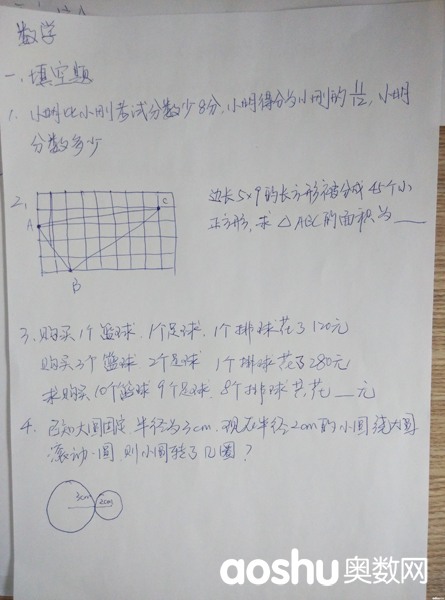 数学
一、填空题
1. 小明比小刚考试分数少8分,小明得分为小刚的11/12,小明
分数多少
2、
A
B
C
边长5×9的长方形被分成45个小
正方形,求△ABC的面积为____
3. 购买1个篮球、1个足球、1个排球花了120元
购买3个篮球 2个足球 1个排球花了280元
求购买10个篮球 9个足球、8个排球共花__元
4. 已知大圆固定,半径为3cm,现有半径2cm的小圆绕大圆
滚动一圆 则小圆转了几圈?
3cm 2cm
aoshu奥数网